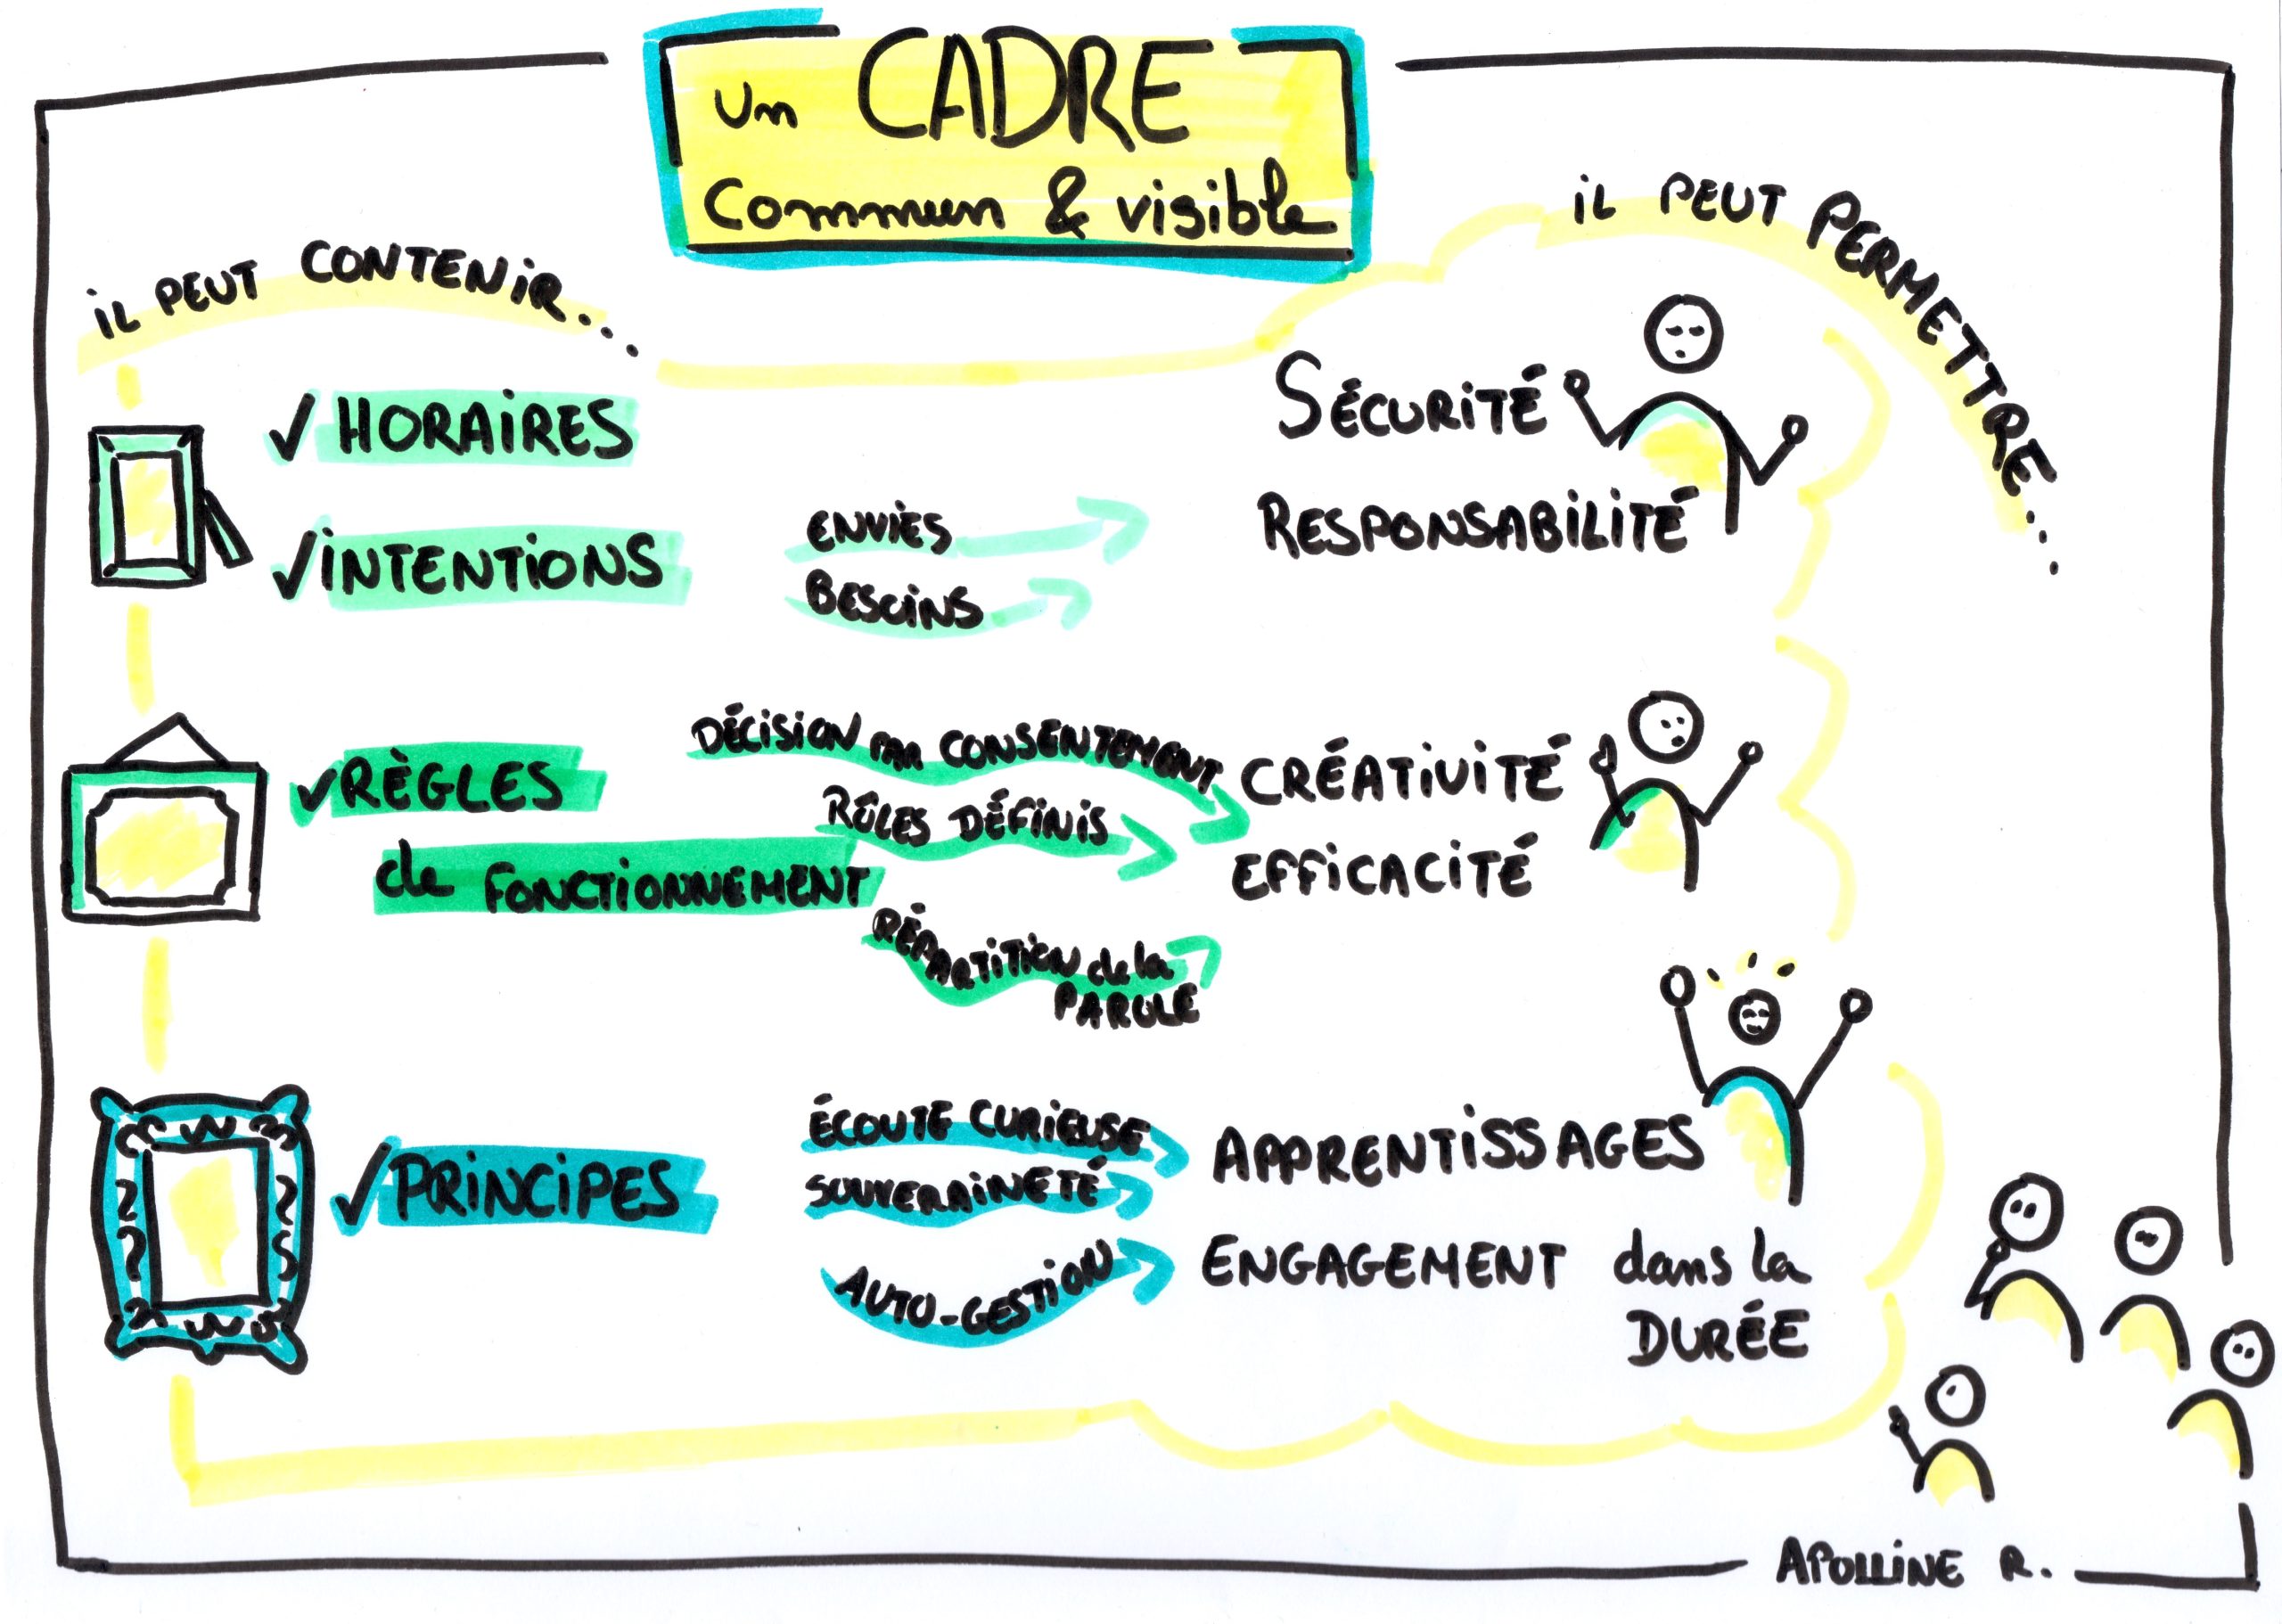 un CADRE
Commun & visible
iL PEUT CONTENiR...
iL PEUT PERMETTRE...
✓ HORAiRES
✓ iNTENTiONS
ENViES
BESOiNS
SÉCURiTÉ
RESPONSABiLiTÉ
✓ RÈGLES
de FONCTIONNEMENT
DÉCiSiON PAR CONSENTEMENT
RÔLES DÉFiNiS
RÉPARTiTiON de la
PAROLE
CRÉATiViTÉ
EFFiCACiTÉ
✓ PRiNCiPES
ÉCOUTE CURiEUSE
SOUVERAiNETÉ
AUTO-GESTiON
APPRENTiSSAGES
ENGAGEMENT dans la
DURÉE
APOLLiNE R.